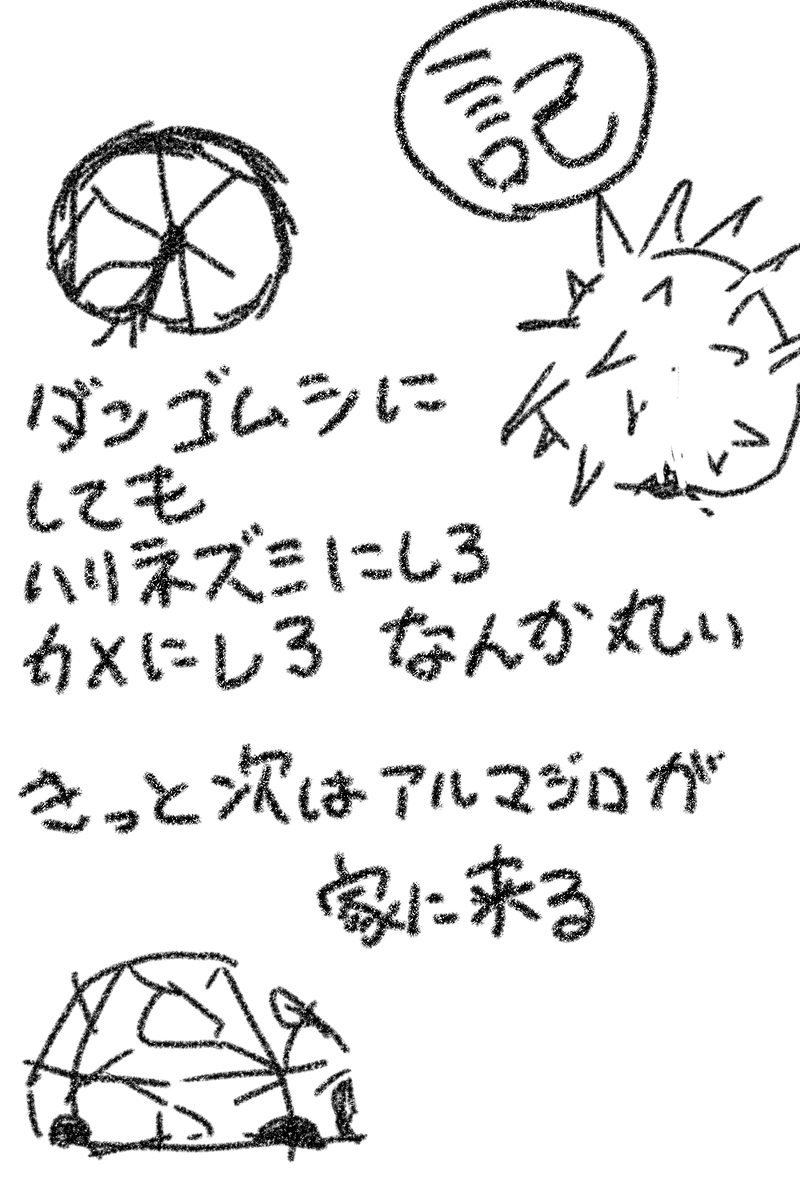 記
ダンゴムシに
しても
ハリネズミにしろ
カメにしろ なんか丸い
きっと次はアルマジロが
家に来る